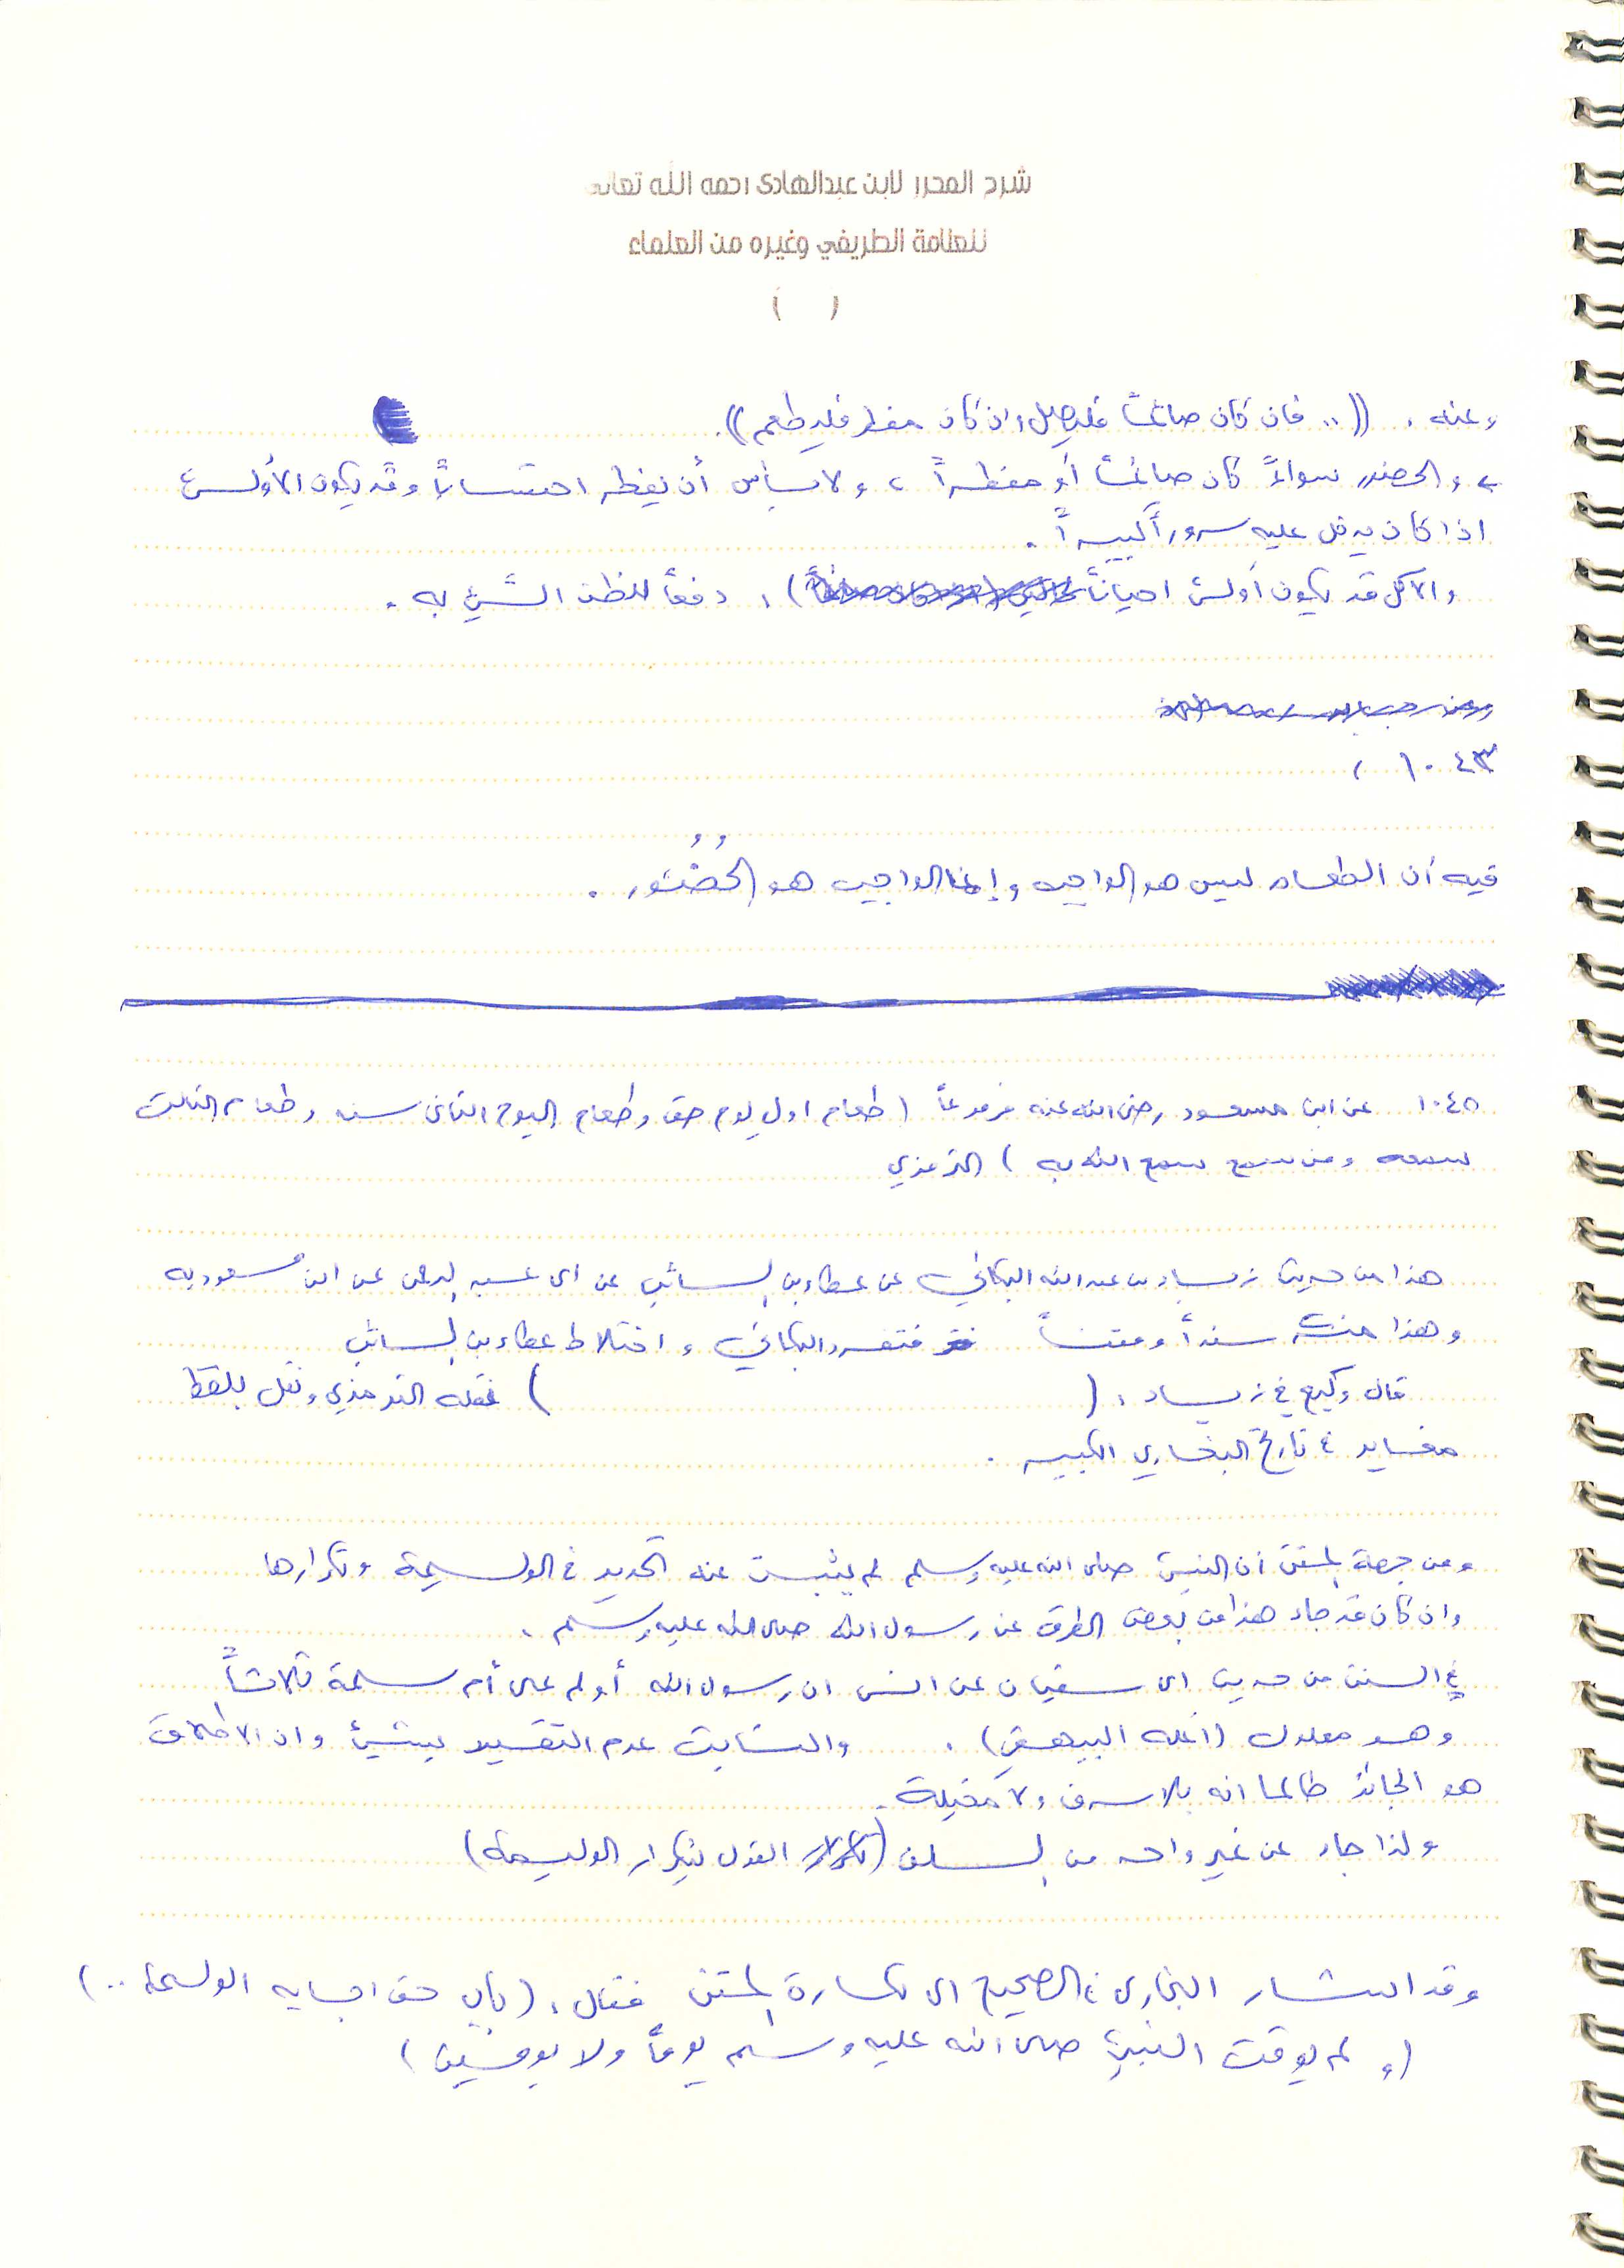 شرح المحرر لابن عبدالهادى رحمه الله تعالى
للعلامة الطريفي وغيره من العلماء
( )
وعنه : ((.. فان كان صائماً فليصل وان كان مفطر فليطعم)).
والحضور سواءً كان صائماً أو مفطراً ، ولا بأس أن يفطر احتساباً وقد يكون الأولى
اذا كان يدخل عليه سروراً كبيراً .
والأكل قد يكون أولى احياناً ، دفعاً للظن السَّيِّئ به .
١٠٤٣ ،
فيه أن الطعام ليس هو الواجب وإنما الواجب هو الحُضُور .
١٠٤٥ عن ابن مسعود رضى الله عنه مرفوعاً ( طعام اول يوم حق وطعام اليوم الثانى سنه وطعام الثالث
سمعه ومن سمع سمع الله به ) الترمذي
هذا من حديث زياد بن عبد الله البكائي عن عطاء بن السائب عن ابى عبد الرحمن عن ابن مسعود به
وهذا منكر سنداً ومتناً فتفرد البكائي واختلاط عطاء بن السائب
قال وكيع في زياد : ( ) نقله الترمذي ونقل بلفظ
مغاير في تاريخ البخاري الكبير .
ومن جهة المتن أن النبي صلى الله عليه وسلم لم يثبت عنه التحديد في الوليمة وتكرارها
وان كان قد جاء هذا من بعض الطرق عن رسول الله صلى الله عليه وسلم .
في السنن من حديث ابى سفيان عن انس ان رسول الله أولم على أم سلمة ثلاثاً
وهو معلول (اعله البيهقي) . والثابت عدم التقييد بشيئ وان الاطلاق
هو الجائز طالما انه بلا سرف ولا مخيلة .
ولذا جاء عن غير واحد من السلف ( القول بتكرار الوليمة)
وقد اشار البخارى في الصحيح الى نكارة المتن فقال : (باب حق اجابه الوليمة ..)
(و لم يوقت النبي صلى الله عليه وسلم يوماً ولا يومين )